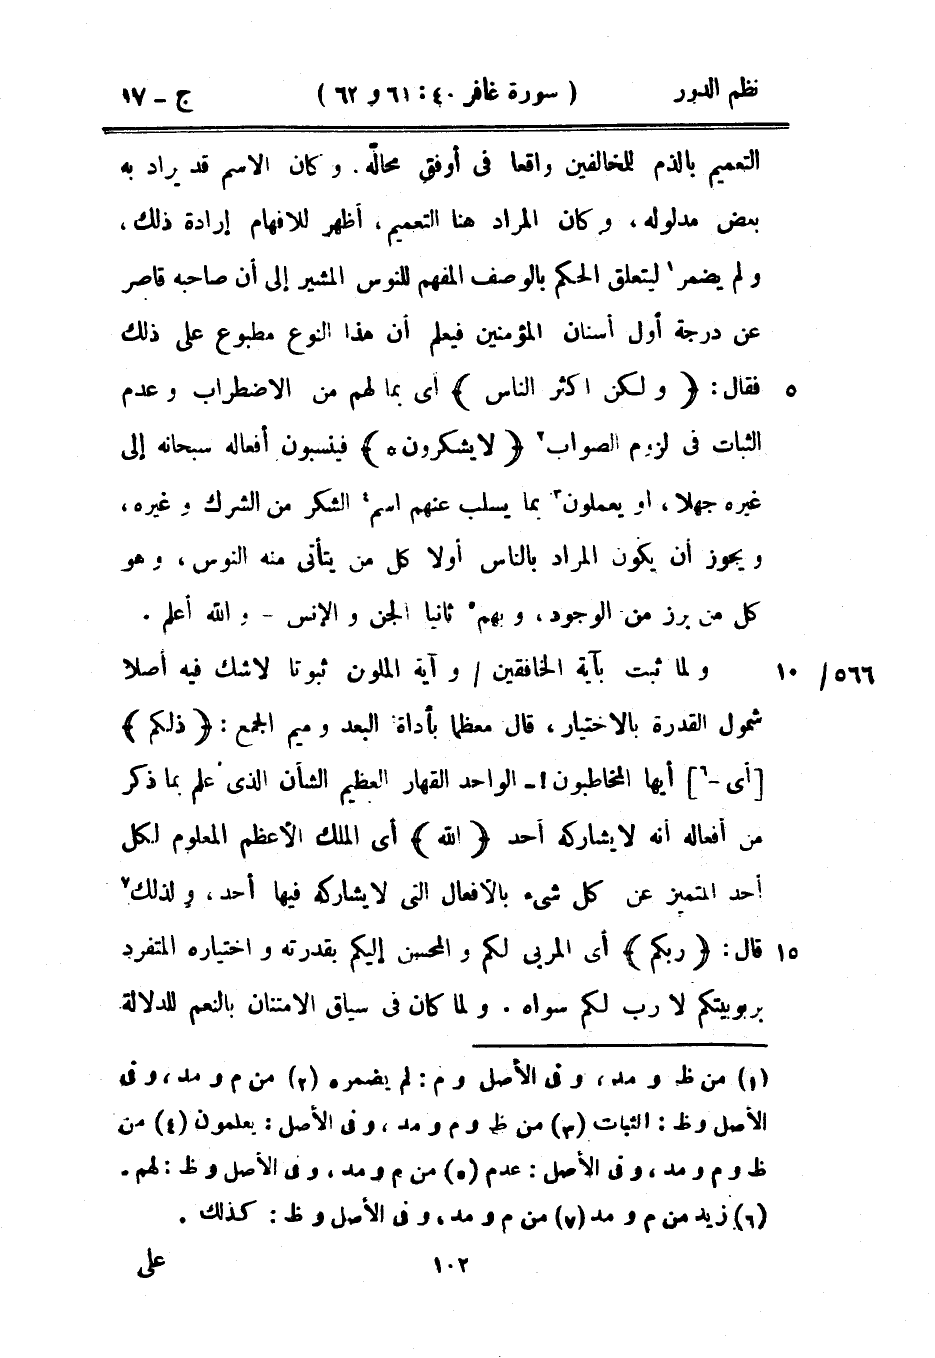 نظم الدرر ( سورة غافر ٤٠ : ٦١ و ٦٢ ) ج - ١٧
التعميم بالذم للمخالفين واقعا فى أوفق محالّه . و كان الاسم قد يراد به
بعض مدلوله ، و كان المراد هنا التعميم ، أظهر للافهام إرادة ذلك ،
و لم يضمر١ ليتعلق الحكم بالوصف المفهم للنوس المشير إلى أن صاحبه قاصر
عن درجة أول أسنان المؤمنين فيعلم أن هذا النوع مطبوع على ذلك
٥ فقال : ﴿ و لكن اكثر الناس ﴾ أى بما لهم من الاضطراب و عدم
الثبات فى لزوم الصواب٢ ﴿ لا يشكرون ه ﴾ فينسبون أفعاله سبحانه إلى
غيره جهلا ، او يعملون٣ بما يسلب عنهم اسم٤ الشكر من الشرك و غيره ،
و يجوز أن يكون المراد بالناس أولا كل من يتأتى منه النوس ، و هو
كل من برز من الوجود ، و بهم٥ ثانيا الجن و الإنس - و الله أعلم .
٥٦٦ / ١٠ و لما ثبت بآية الخافقين / و آية الملون ثبوتا لا شك فيه أصلا
شمول القدرة بالاختيار ، قال معظما بأداة البعد و ميم الجمع : ﴿ ذلكم ﴾
[ أى -٦ ] أيها المخاطبون ! - الواحد القهار العظيم الشأن الذى علم بما ذكر
من أفعاله أنه لا يشاركه أحد ﴿ الله ﴾ أى الملك الأعظم المعلوم لكل
أحد المتميز عن كل شىء بالأفعال التى لا يشاركه فيها أحد ، و لذلك٧
١٥ قال : ﴿ ربكم ﴾ أى المربى لكم و المحسن إليكم بقدرته و اختياره المتفرد
بربوبيتكم لا رب لكم سواه . و لما كان فى سياق الامتنان بالنعم للدلالة
(١) من ظ و مد ، و فى الأصل و م : لم يضمره (٢) من م و مد ، و فى
الأصل و ظ : الثبات (٣) من ظ و م و مد ، و فى الأصل : يعلمون (٤) من
ظ و م و مد ، و فى الأصل : عدم (٥) من م و مد ، و فى الأصل و ظ : لهم .
(٦) زيد من م و مد (٧) من م و مد ، و فى الأصل و ظ : كذلك .
١٠٢ على